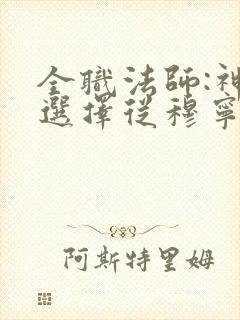 全職法師:神
選擇從穆寧
阿斯特里姆